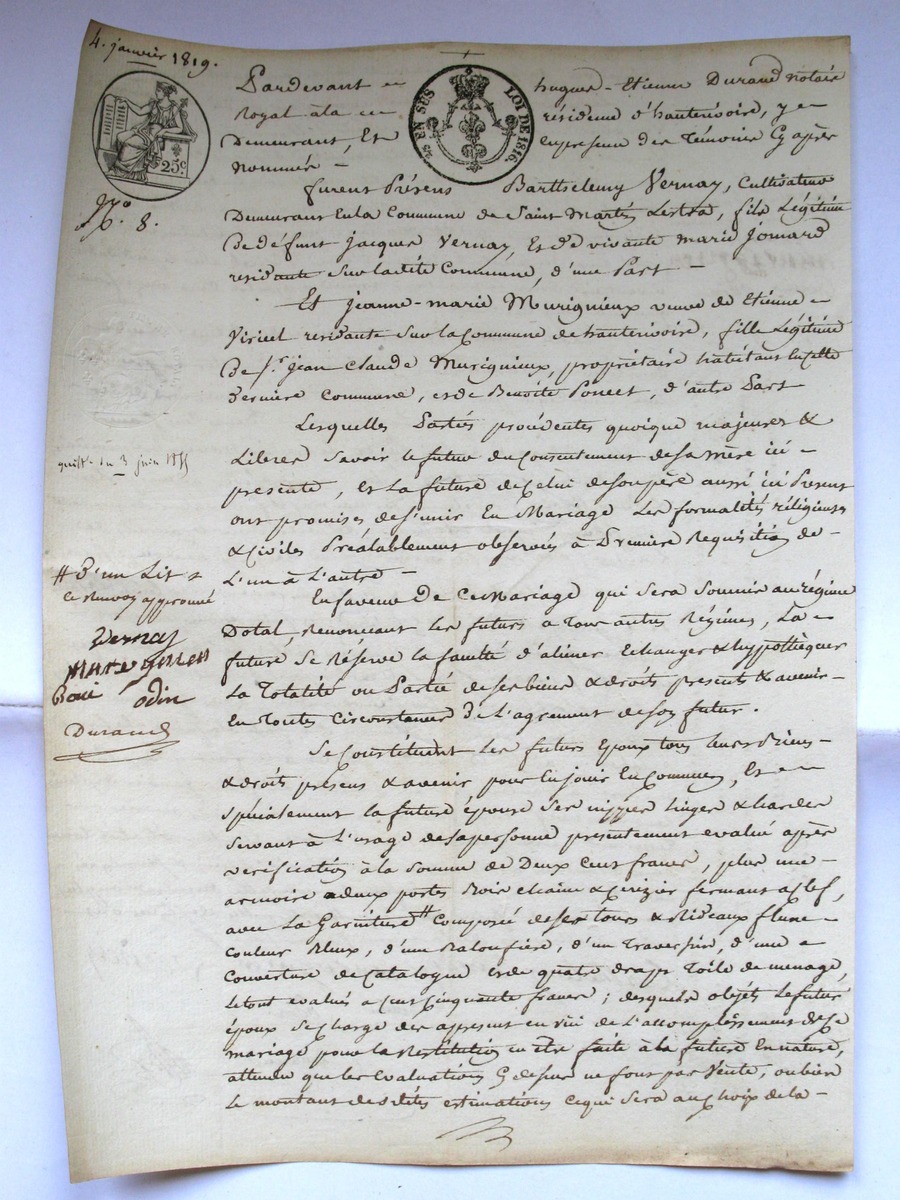 4. janvier 1819.
25c.
25 EN SUS
LOI DE 1816.
N.º 8.
Pardevant Hugues-Etienne Durand notaire
Royal à la résidence d'hauterivoire, y
Demeurant, Et en présence des Témoins Cy après
Nommés -
furent Présens Barthelemy Vernay, Cultivateur
Demeurant En la Commune de Saint Martin Lestra, fils Légitime
De défunt Jacques Vernay, Et de vivante marie Jomard
residante sur la dite Commune, d'une Part -
Et jeanne-marie Murignieux veuve de Etienne
Viriel residante sur la Commune de hauterivoire, fille Légitime
De Sr. jean Claude Murignieux, propriétaire habitant en cette
derniere Commune, et de Benoite Poncet, d'autre Part
Lesquelles Parties procédentes quoique majeures &
Libres Savoir le futur du Consentement de sa mère ici -
presente, et La future de Celui de son père aussi ici Present
ont promises de S'unir En Mariage Les formalités réligieuses
& Civiles Préalablement observées à Premiere Requisition de -
L'un à L'autre -
En faveur de Ce Mariage qui Sera Soumis au régime
Dotal, Renoncant les futurs a Tous autres Régimes, La -
future Se Réserve la faculté d'aliéner Echanger & hypothèquer
La Totalité ou Partie de ses biens & droits presents & avenir -
En Toutes Circonstances De L'agrement de son futur.
Se Constituent Les futurs Epoux tous leurs Biens -
& droits présens & avenir pour En jouir En Commun, Et -
Spécialement la future épouse Ses nippes linges & hardes
Servant à L'usage de sa personne presentement evalué après
verification à la Somme de Deux Cent francs, plus une -
armoire a deux portes Bois chaine & Cerizier fermant a Clef,
avec La Garniture # Composée de ses tours & Rideaux
Couleur Bleux, d'une Baloufière, d'un Traversin, d'une
Couverture de Catalogne et de quatre draps Toile de menage,
Le tout evalués a Cent Cinquante francs; desquels objets Le futur
époux Se Charge des apresent en vüe de L'accomplissement de Ce
mariage pour la Restitution en être faite à la future En nature,
attendu que les Evaluations Cy dessus ne font pas Vente, ou bien
Le montant des dites estimations Ce qui Sera au Choix de la -
quitt. du 3 juin
# D'un Lit
Ce Renvoy approuvé
Vernay
odin
Durand